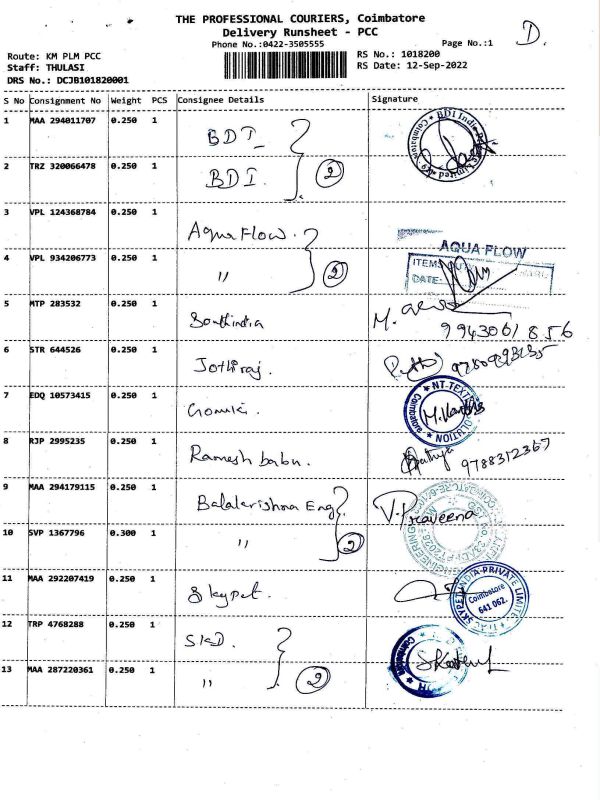 THE PROFESSIONAL COURIERS, Coimbatore
Delivery Runsheet - PCC
Phone No.:0422-3505555
Page No.:1
D.
Route: KM PLM PCC
RS No.: 1018200
Staff: THULASI
RS Date: 12-Sep-2022
DRS No.: DCJB101820001
S No Consignment No Weight PCS Consignee Details Signature
1 MAA 294011707 0.250 1 BDI
2 TRZ 320066478 0.250 1 BDI. 2
3 VPL 124368784 0.250 1 Aqua Flow.
AQUA FLOW
4 VPL 934206773 0.250 1 " 2
DATE:
5 MTP 283532 0.250 1 Southindia M.
9943061856
6 STR 644526 0.250 1 Jothiraj.
7 EDQ 10573415 0.250 1
8 RJP 2995235 0.250 1 Ramesh babu. 9788312367
9 MAA 294179115 0.250 1 Balakrishna Eng V. Praveena
10 SVP 1367796 0.300 1 " 2
11 MAA 292207419 0.250 1 Skypet.
SKYPET INDIA PRIVATE LIMITED
Coimbatore
641 062.
12 TRP 4768288 0.250 1 SKD.
13 MAA 287220361 0.250 1 " 2